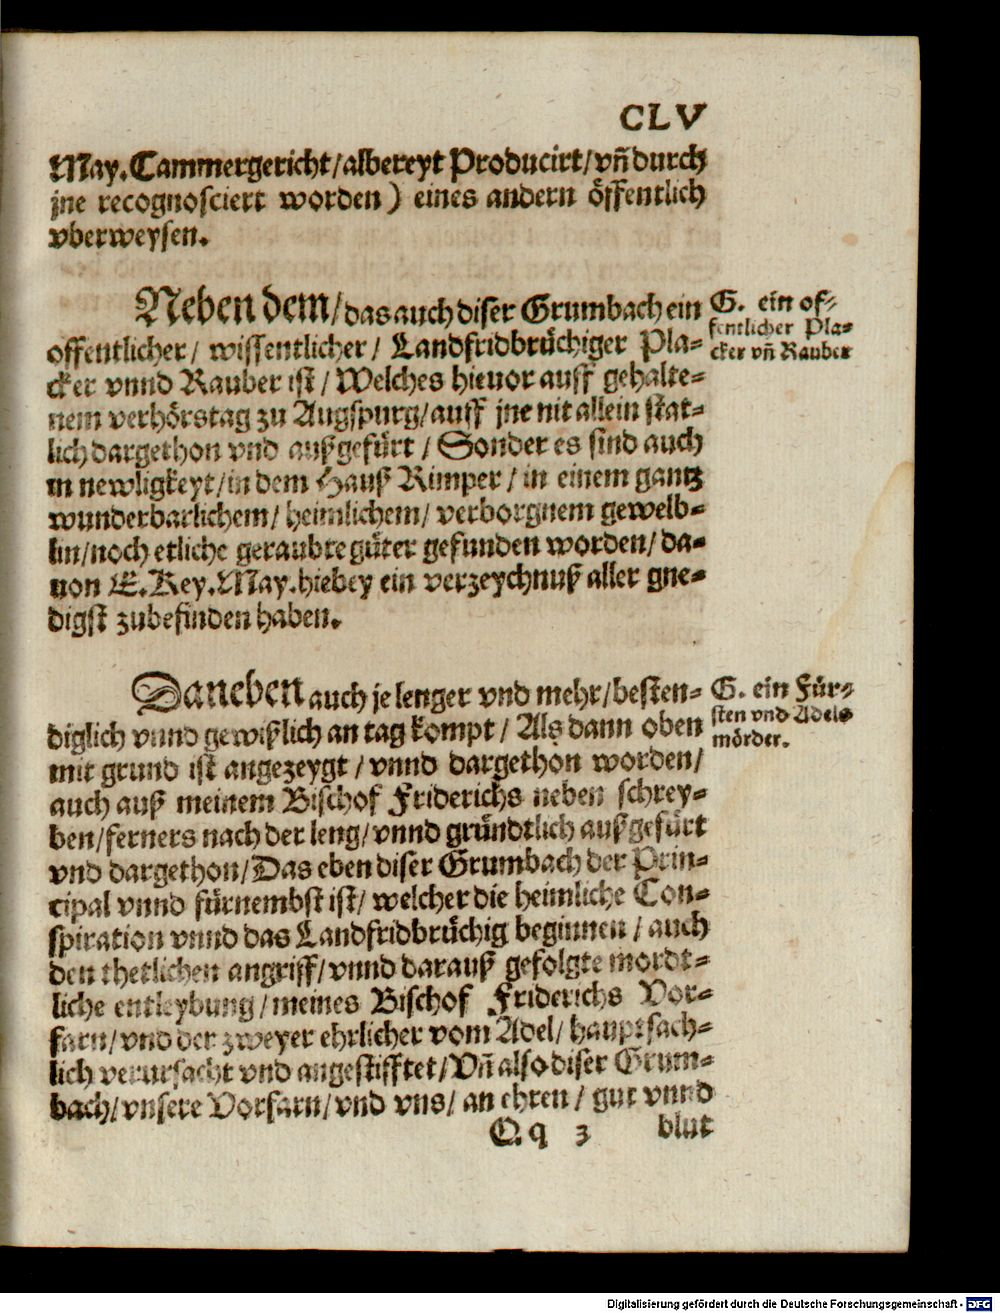 CLV
May. Cammergericht/albereyt Producirt/vñ durch
jne recognosciert worden) eines andern öffentlich
vberweysen.
Neben dem/das auch diser Grumbach ein
offentlicher/ wissentlicher/ Landfridbrüchiger Pla-
cker vnnd Rauber ist/Welches hieuor auff gehalte-
nem verhörstag zu Augspurg/auff jne nit allein stat-
lich dargethon vnd außgefürt/Sonder es sind auch
in newligkeyt/in dem Hauß Rimper/in einem gantz
wunderbarlichem/heimlichem/verborgnem gewelb-
lin/noch etliche geraubte güter gefunden worden/da-
uon E.Key.May.hiebey ein verzeychnuß aller gne-
digst zubefinden haben.
G. ein of-
fentlicher Pla-
cker vñ Rauber
Daneben auch je lenger vnd mehr/besten-
diglich vnnd gewißlich an tag kompt/Als dann oben
mit grund ist angezeygt/vnnd dargethon worden/
auch auß meinem Bischof Friderichs neben schrey-
ben/ferners nach der leng/vnnd gründtlich außgefürt
vnd dargethon/Das eben diser Grumbach der Prin-
cipal vnnd fürnembst ist/welcher die heimliche Con-
spiration vnnd das Landfridbrüchig beginnen/auch
den thetlichen angriff/vnnd darauß gefolgte mordt-
liche entleybung/meines Bischof Friderichs Vor-
farn/vnd der zweyer ehrlicher vom Adel/hauptsach-
lich verursacht vnd angestifftet/Vñ also diser Grum-
bach/vnsere Vorfarn/vnd vns/an ehren/gut vnnd
G. ein Für-
sten vnd Adels
mörder.
Qq 3 blut
Digitalisierung gefördert durch die Deutsche Forschungsgemeinschaft - DFG